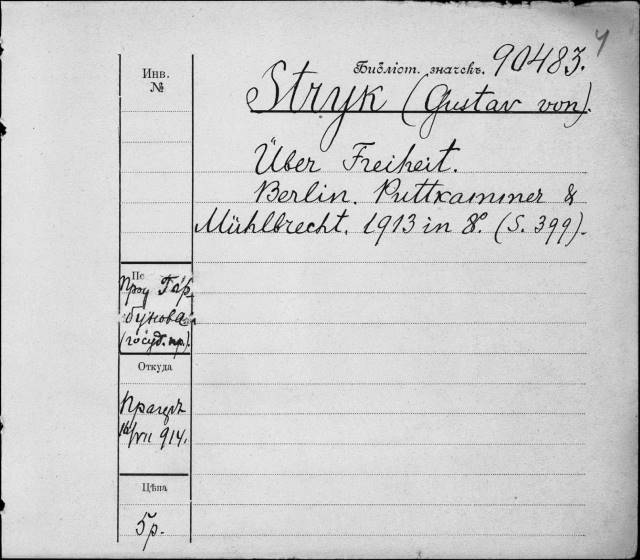 Инв.
№
Библіот. значекъ. 90483.
Stryk (Gustav von).
Über Freiheit.
Berlin. Puttkammer &
Mühlbrecht. 1913 in 8º. (S. 399).
По
проф Гор
бунова
(госуд. пр.).
Откуда
Прагеръ
16/VII 914.
Цѣна
5р.